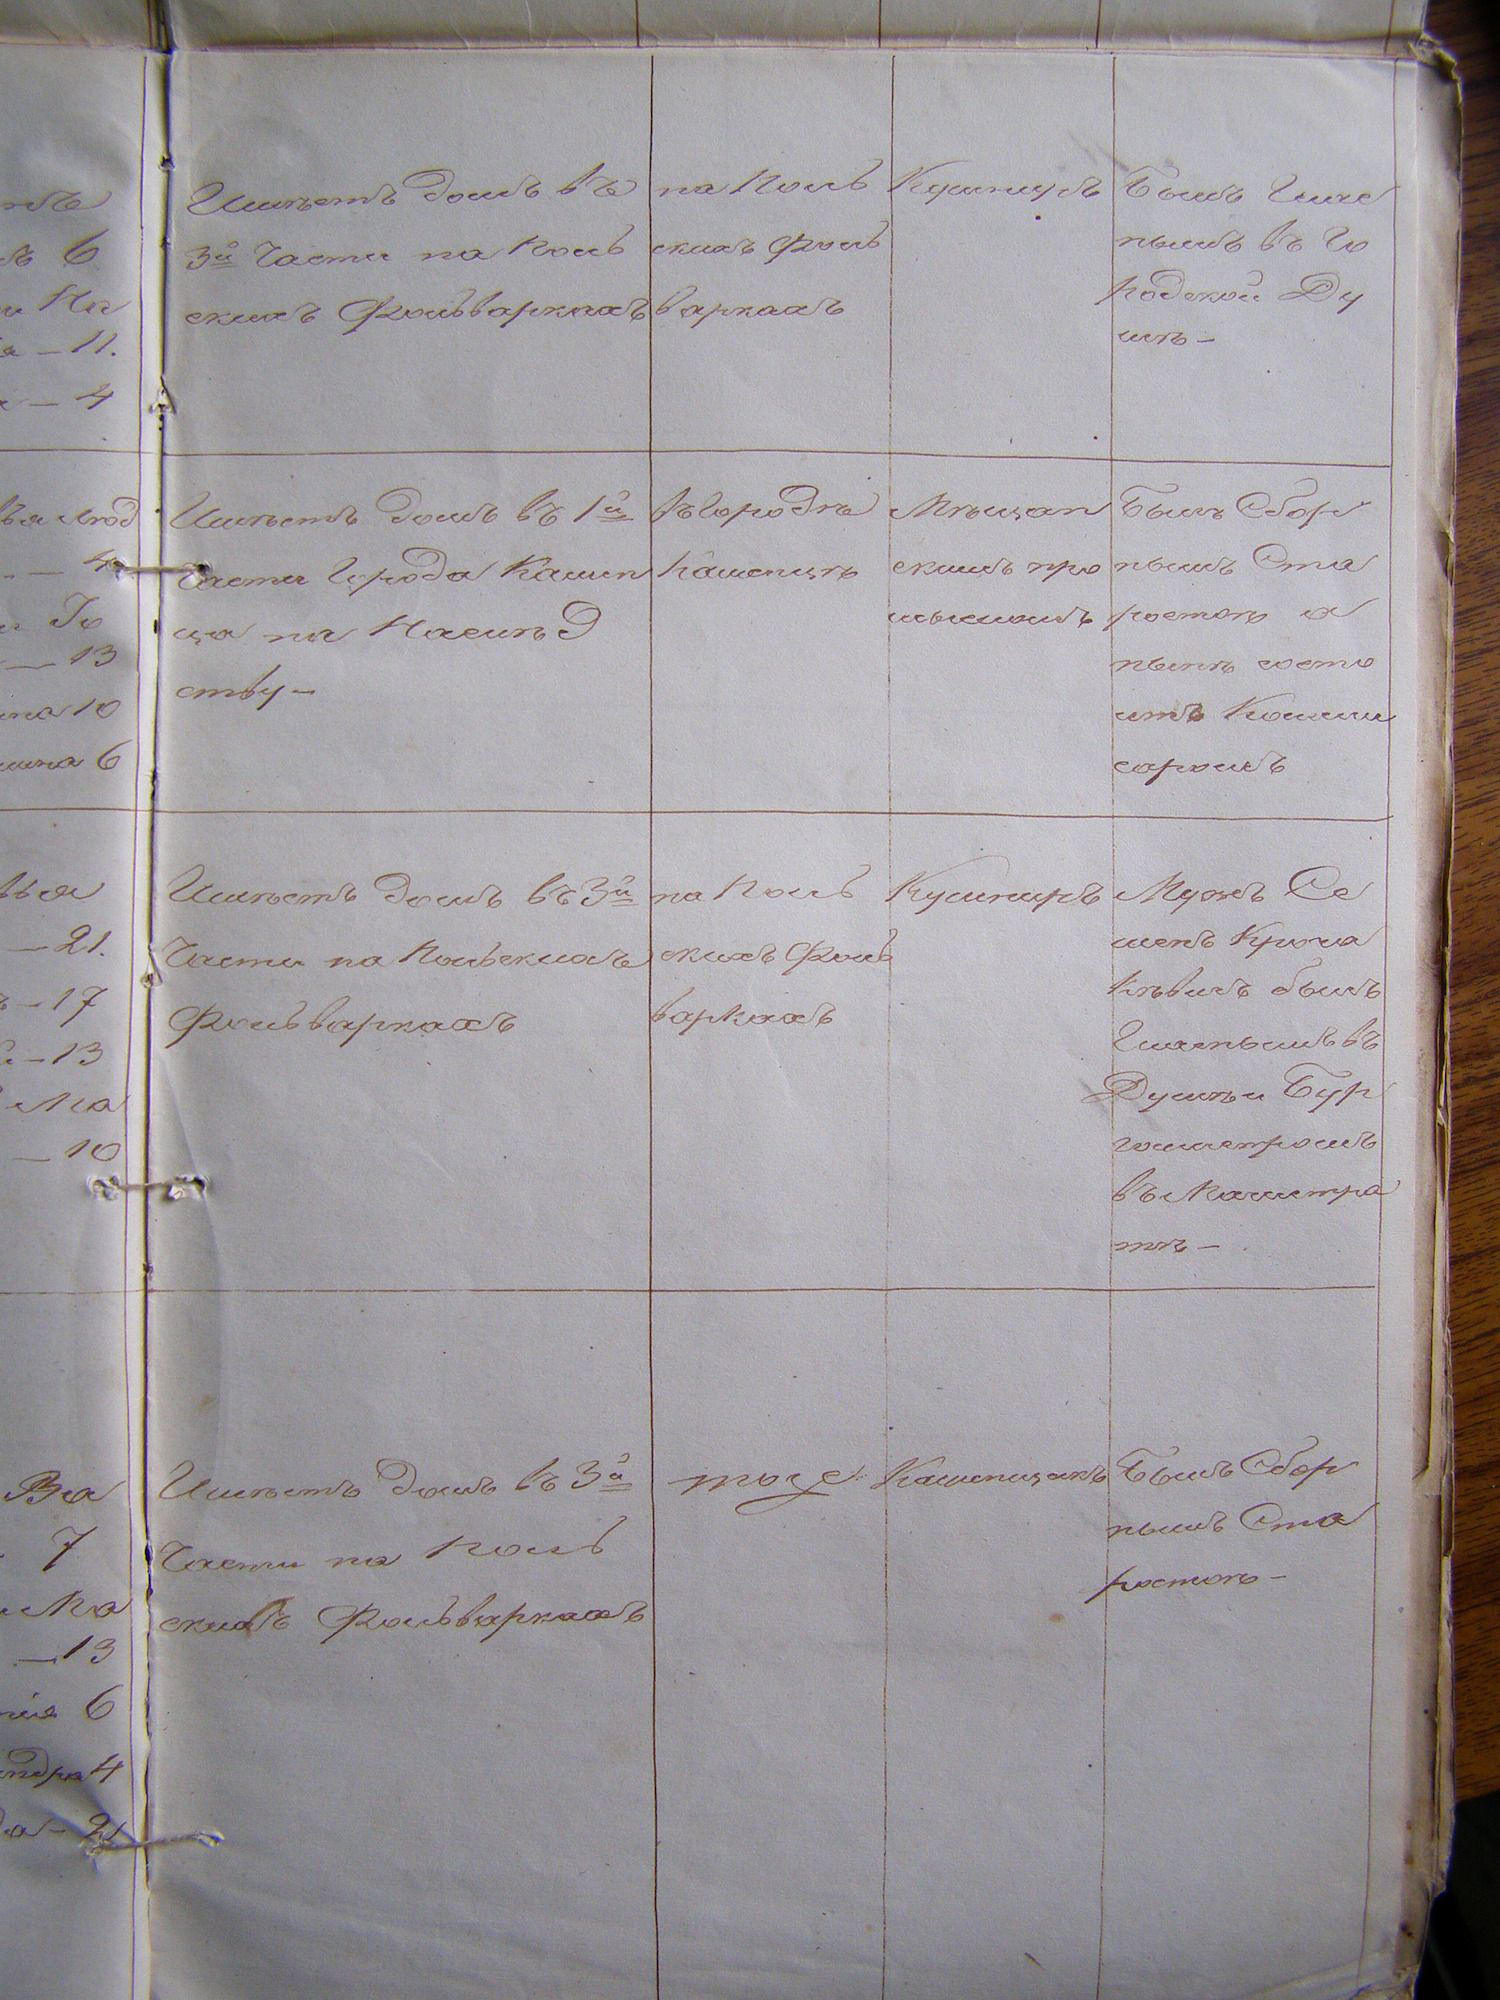 6
11.
4
Имѣетъ домъ въ
3й Части на Поль
скихъ Фольваркахъ
на Поль
скихъ Фоль
варкахъ
Кушниръ
Былъ Глас
нымъ въ Го
родской Ду
мѣ —
4
13
10
6
Имѣетъ домъ въ 1й
Части Города Камен
ца на Наслѣд
ству —
въ Городѣ
Каменцѣ
Мѣщан
скимъ про
мысломъ
Былъ Сбор
нымъ Ста
ростою а
нынѣ состо
итъ Комми
саромъ
— 21.
— 17
— 13
Ма
— 10
Имѣетъ домъ въ 3й
Части на Польскихъ
Фольваркахъ
на Поль
скихъ Фоль
варкахъ
Кушниръ
Мужъ Се
менъ
былъ
Гласнымъ въ
Думѣ и Бур
гомистромъ
въ Магистра
тѣ —
Ва
7
Ма
— 13
6
4
2
Имѣетъ домъ въ 3й
Части на Поль
скихъ Фольваркахъ
тоже
Былъ Сбор
нымъ Ста
ростою —